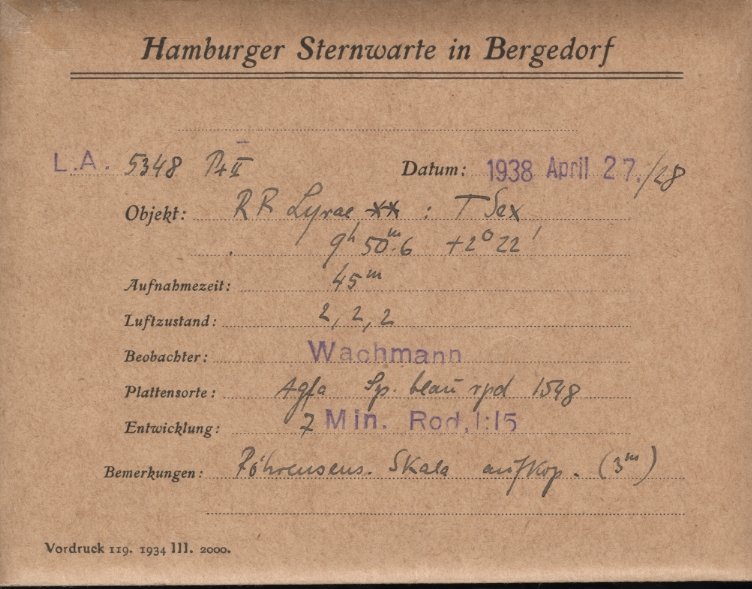 Hamburger Sternwarte in Bergedorf
L.A. 5348 Pr II
Datum: 1938 April 27./28
Objekt: RR Lyrae ** : T Sex
9h 50m.6 +2° 22'
Aufnahmezeit: 45m
Luftzustand: 2, 2, 2
Beobachter: Wachmann
Plattensorte: Agfa Sp. blau rpd 1548
Entwicklung: 7 Min. Rod. 1:15
Bemerkungen: Röhrensens. Skala aufkop. (3m)
Vordruck 119. 1934 III. 2000.